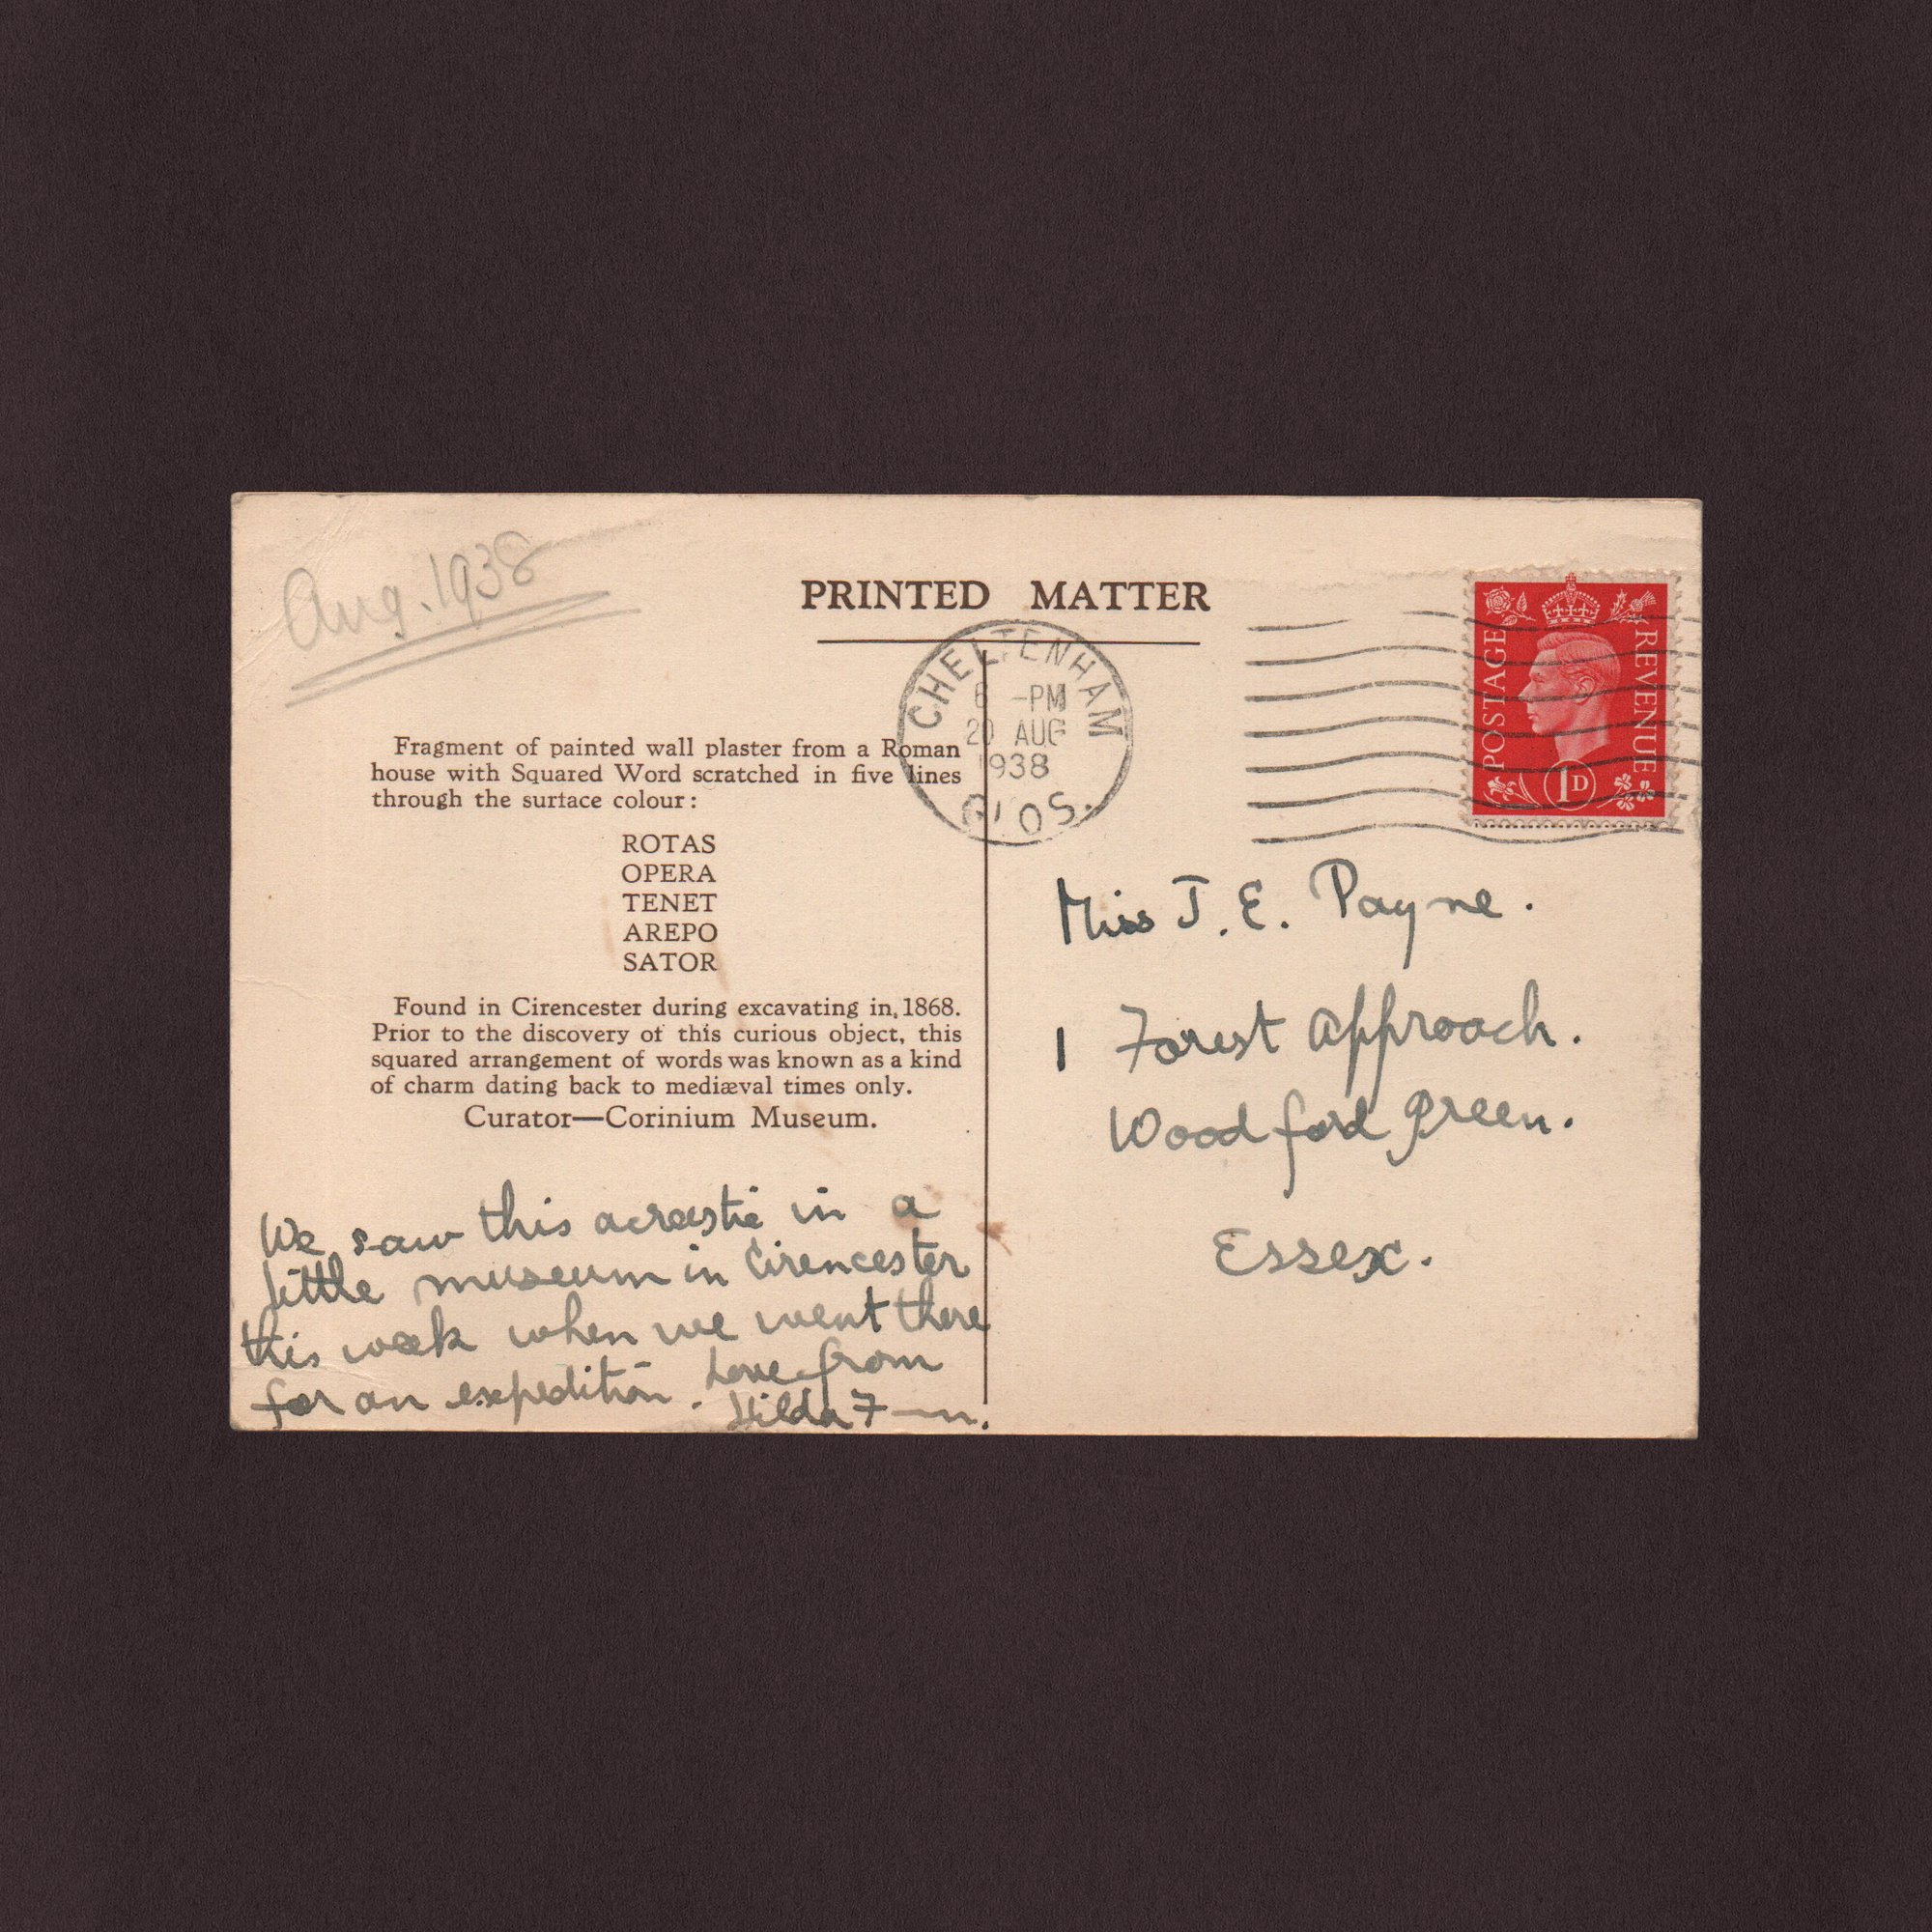 Aug. 1938
PRINTED MATTER
CHELTENHAM
6 -PM
20 AUG
1938
GLOS.
POSTAGE
REVENUE
1D
Fragment of painted wall plaster from a Roman
house with Squared Word scratched in five lines
through the surface colour:
ROTAS
OPERA
TENET
AREPO
SATOR
Found in Cirencester during excavating in, 1868.
Prior to the discovery of this curious object, this
squared arrangement of words was known as a kind
of charm dating back to mediæval times only.
Curator—Corinium Museum.
We saw this acrostic in a
little museum in Cirencester
this week when we went there
for an expedition. Love from
Hilda F—n.
Miss J. E. Payne.
1 Forest Approach.
Woodford Green.
Essex.